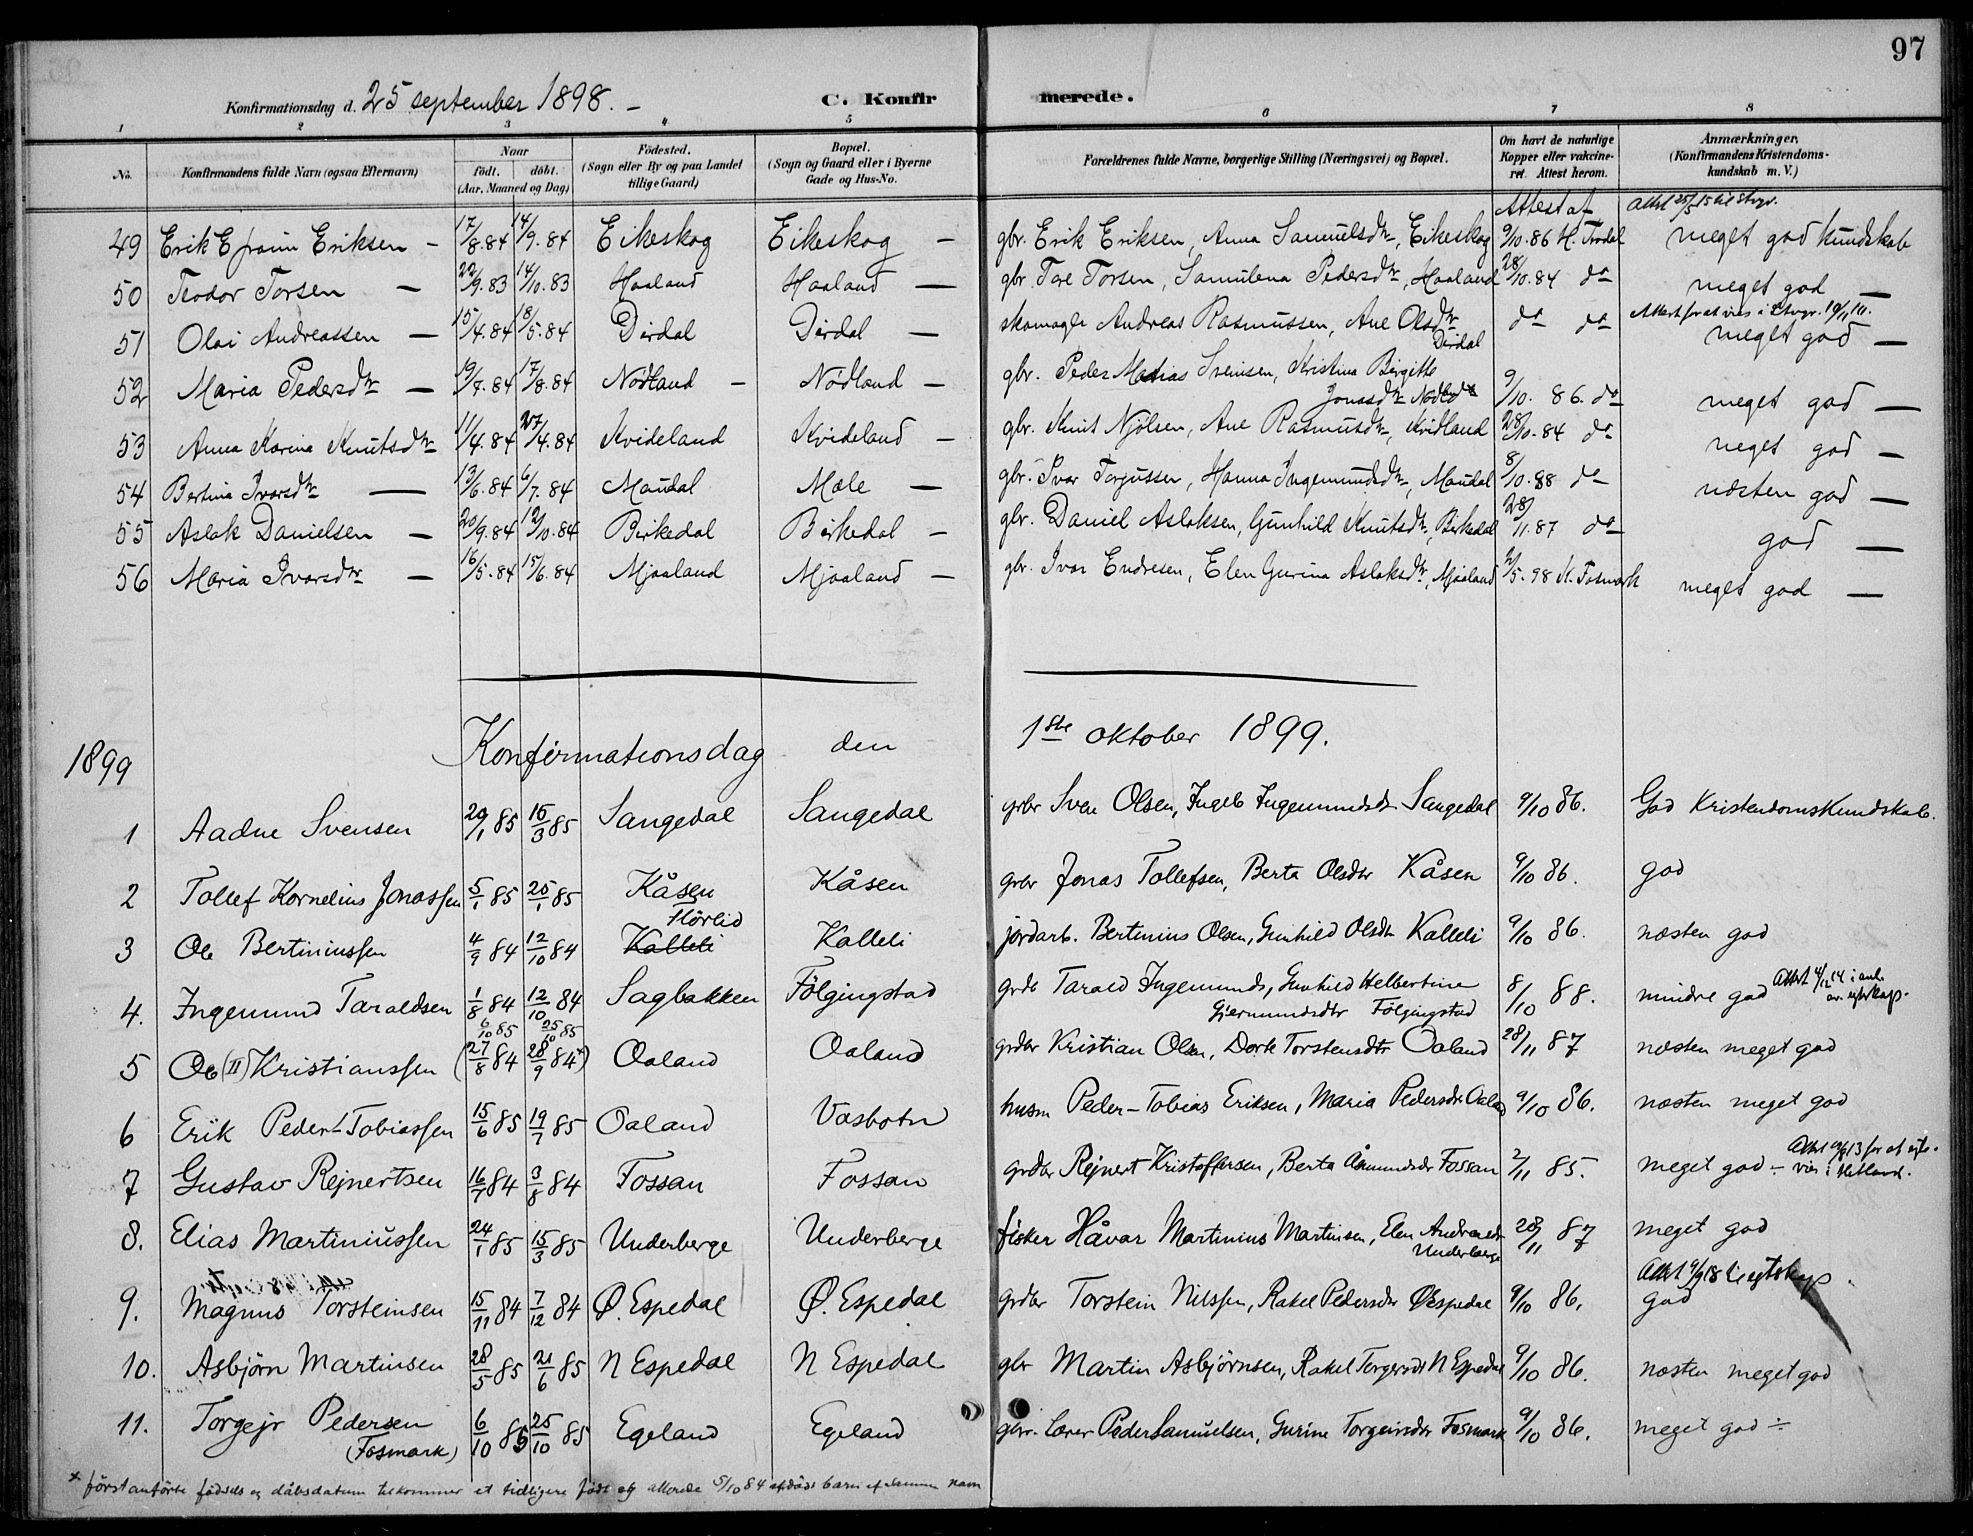 97
Konfirmationsdag d. 25 september 1898. – C. Konfirmerede.
1 2 3 4 5 6 7 8
No. Konfirmandens fulde Navn (ogsaa Efternavn) Naar født. døbt. (Aar, Maaned og Dag) Fødested. (Sogn eller By og paa Landet tillige Gaard) Bopæl. (Sogn og Gaard eller i Byerne Gade og Hus-No. Forældrenes fulde Navne, borgerlige Stilling (Næringsvei) og Bopæl. Om havt de naturlige Kopper eller vakcineret. Attest herom. Anmærkninger, (Konfirmandens Kristendomskundskab m. V.)
Attest af
49 Erik Efraim Eriksen – 17/8.84 14/9.84 Eikeskog Eikeskog – gbr. Erik Eriksen, Anna Samuelsdtr, Eikeskog 9/10.86 H. Frødal meget god Kundskab
50 Teodor Torsen — 22/9.83 14/10.83 Haaland Haaland — gbr. Tore Torsen, Samulena Pedersdtr, Haaland 28/10.84 do meget god —
51 Olai Andreassen — 15/4.84 18/5.84 Dirdal Dirdal — skomager Andreas Rasmussen, Ane Olsdtr Dirdal do do meget god —
52 Maria Pedersdtr — 19/7.84 17/8.84 Nødland – Nødland – gbr. Peder Matias Sveinsen, Kristina Birgitte Jonasdtr Nødld 9/10.86. do meget god —
53 Anna Karina Knutsdtr 11/4.84 27/4.84 Kvideland Kvideland – gbr. Knut Njølsen, Ane Rasmusdtr, Kvidland 28/10.84 do meget god —
54 Bertina Ivarsdtr — 13/6.84 6/7.84 Maudal Mæle — gbr. Ivar Torjussen, Hanna Ingemundsdtr, Maudal 8/10.88 do næsten god —
55 Aslak Danielsen — 20/9.84 12/10.84 Birkedal Birkedal – gbr. Daniel Aslaksen, Gunhild Knutsdtr, Birkedal 28/11.87 do god —
56 Maria Ivarsdtr — 16/5.84 15/6.84 Mjaaland Mjaaland – gbr. Ivar Endresen, Elen Gurina Aslaksdtr, Mjaaland 2/5.98 K. Fosmark meget god —
1899 Konfirmationsdag den 1ste oktober 1899.
1 Aadne Svensen 29/1 85 15/3 85 Sangedal Sangedal grbr Sven Olsen, Ingeb Ingemundsdr Sangedal 9/10 86. God Kristendomskundskab.
2 Tollef Kornelius Jonassen 5/1 85 25/1 85 Kåsen Kåsen grbr Jonas Tollefsen, Berta Olsdtr Kåsen 9/10 86. god
3 Ole Bertiniussen 4/9 84 12/10 84 Hørlid Kalleli Kalleli jordarb. Bertinius Olsen, Gunhild Olsdtr Kalleli 9/10 86. næsten god
4. Ingemund Taraldsen 1/8 84 12/10 84 Sagbakken Fölgingstad grdb Tarald Ingemunds, Gunhild Helbertine Gjermundsdtr Fölgingstad 8/10 88. mindre god
6/10 85 25/10 85
5 Ole (II) Kristianssen (27/8 84 28/9 84*) Oaland Oaland grdbr Kristian Olsen, Dorte Torstensdtr Oaland 28/11 87 næsten meget god
6 Erik Peder-Tobiassen 15/6 85 19/7 85 Oaland Vasbotn husm Peder-Tobias Eriksen, Maria Pedersdr Oaland 9/10 86. næsten meget god
7 Gustav Rejnertsen 16/7 84 3/8 84 Fossan Fossan grdbr Rejnert Kristoffersen, Berta Åsmundsdr Fossan 2/11 85. meget god ÷
8. Elias Martiniussen 24/1 85 15/3 85 Underberge Underberge fisker Håvar Martinius Martinsen, Elen Andreasdr Underberge 28/11 87 meget god
9. Magnus Torsteinsen 15/11 84 7/12 84 Ø. Espedal Ø. Espedal grdbr Torstein Nilssen, Rakel Pedersdr ØEspedal 9/10 86. god
10. Asbjörn Martinsen 28/5 85 21/6 85 N Espedal N Espedal gbr Martin Asbjørnsen, Rakel Torgersdr N Espedal 9/10 86. næsten meget god
11. Torgejr Pedersen (Fosmark) 6/10 85 25/10 85 Egeland Egeland gbr. lærer Peder Samuelsen, Gurine Torgeirsdtr Fosmark 9/10 86. meget god ÷
* först anförte fødsels og dåbsdatum tilkommer et tidligere født og allerede 5/10 84 afdødt barn af samme navn